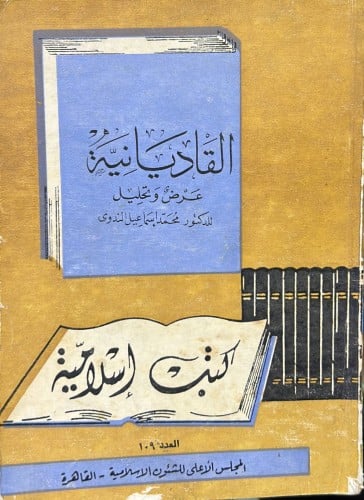 القاديانية
عرض وتحليل
للدكتور محمد إسماعيل الندوى
كتب إسلامية
العدد ١٠٩
المجلس الأعلى للشئون الإسلامية - القاهرة